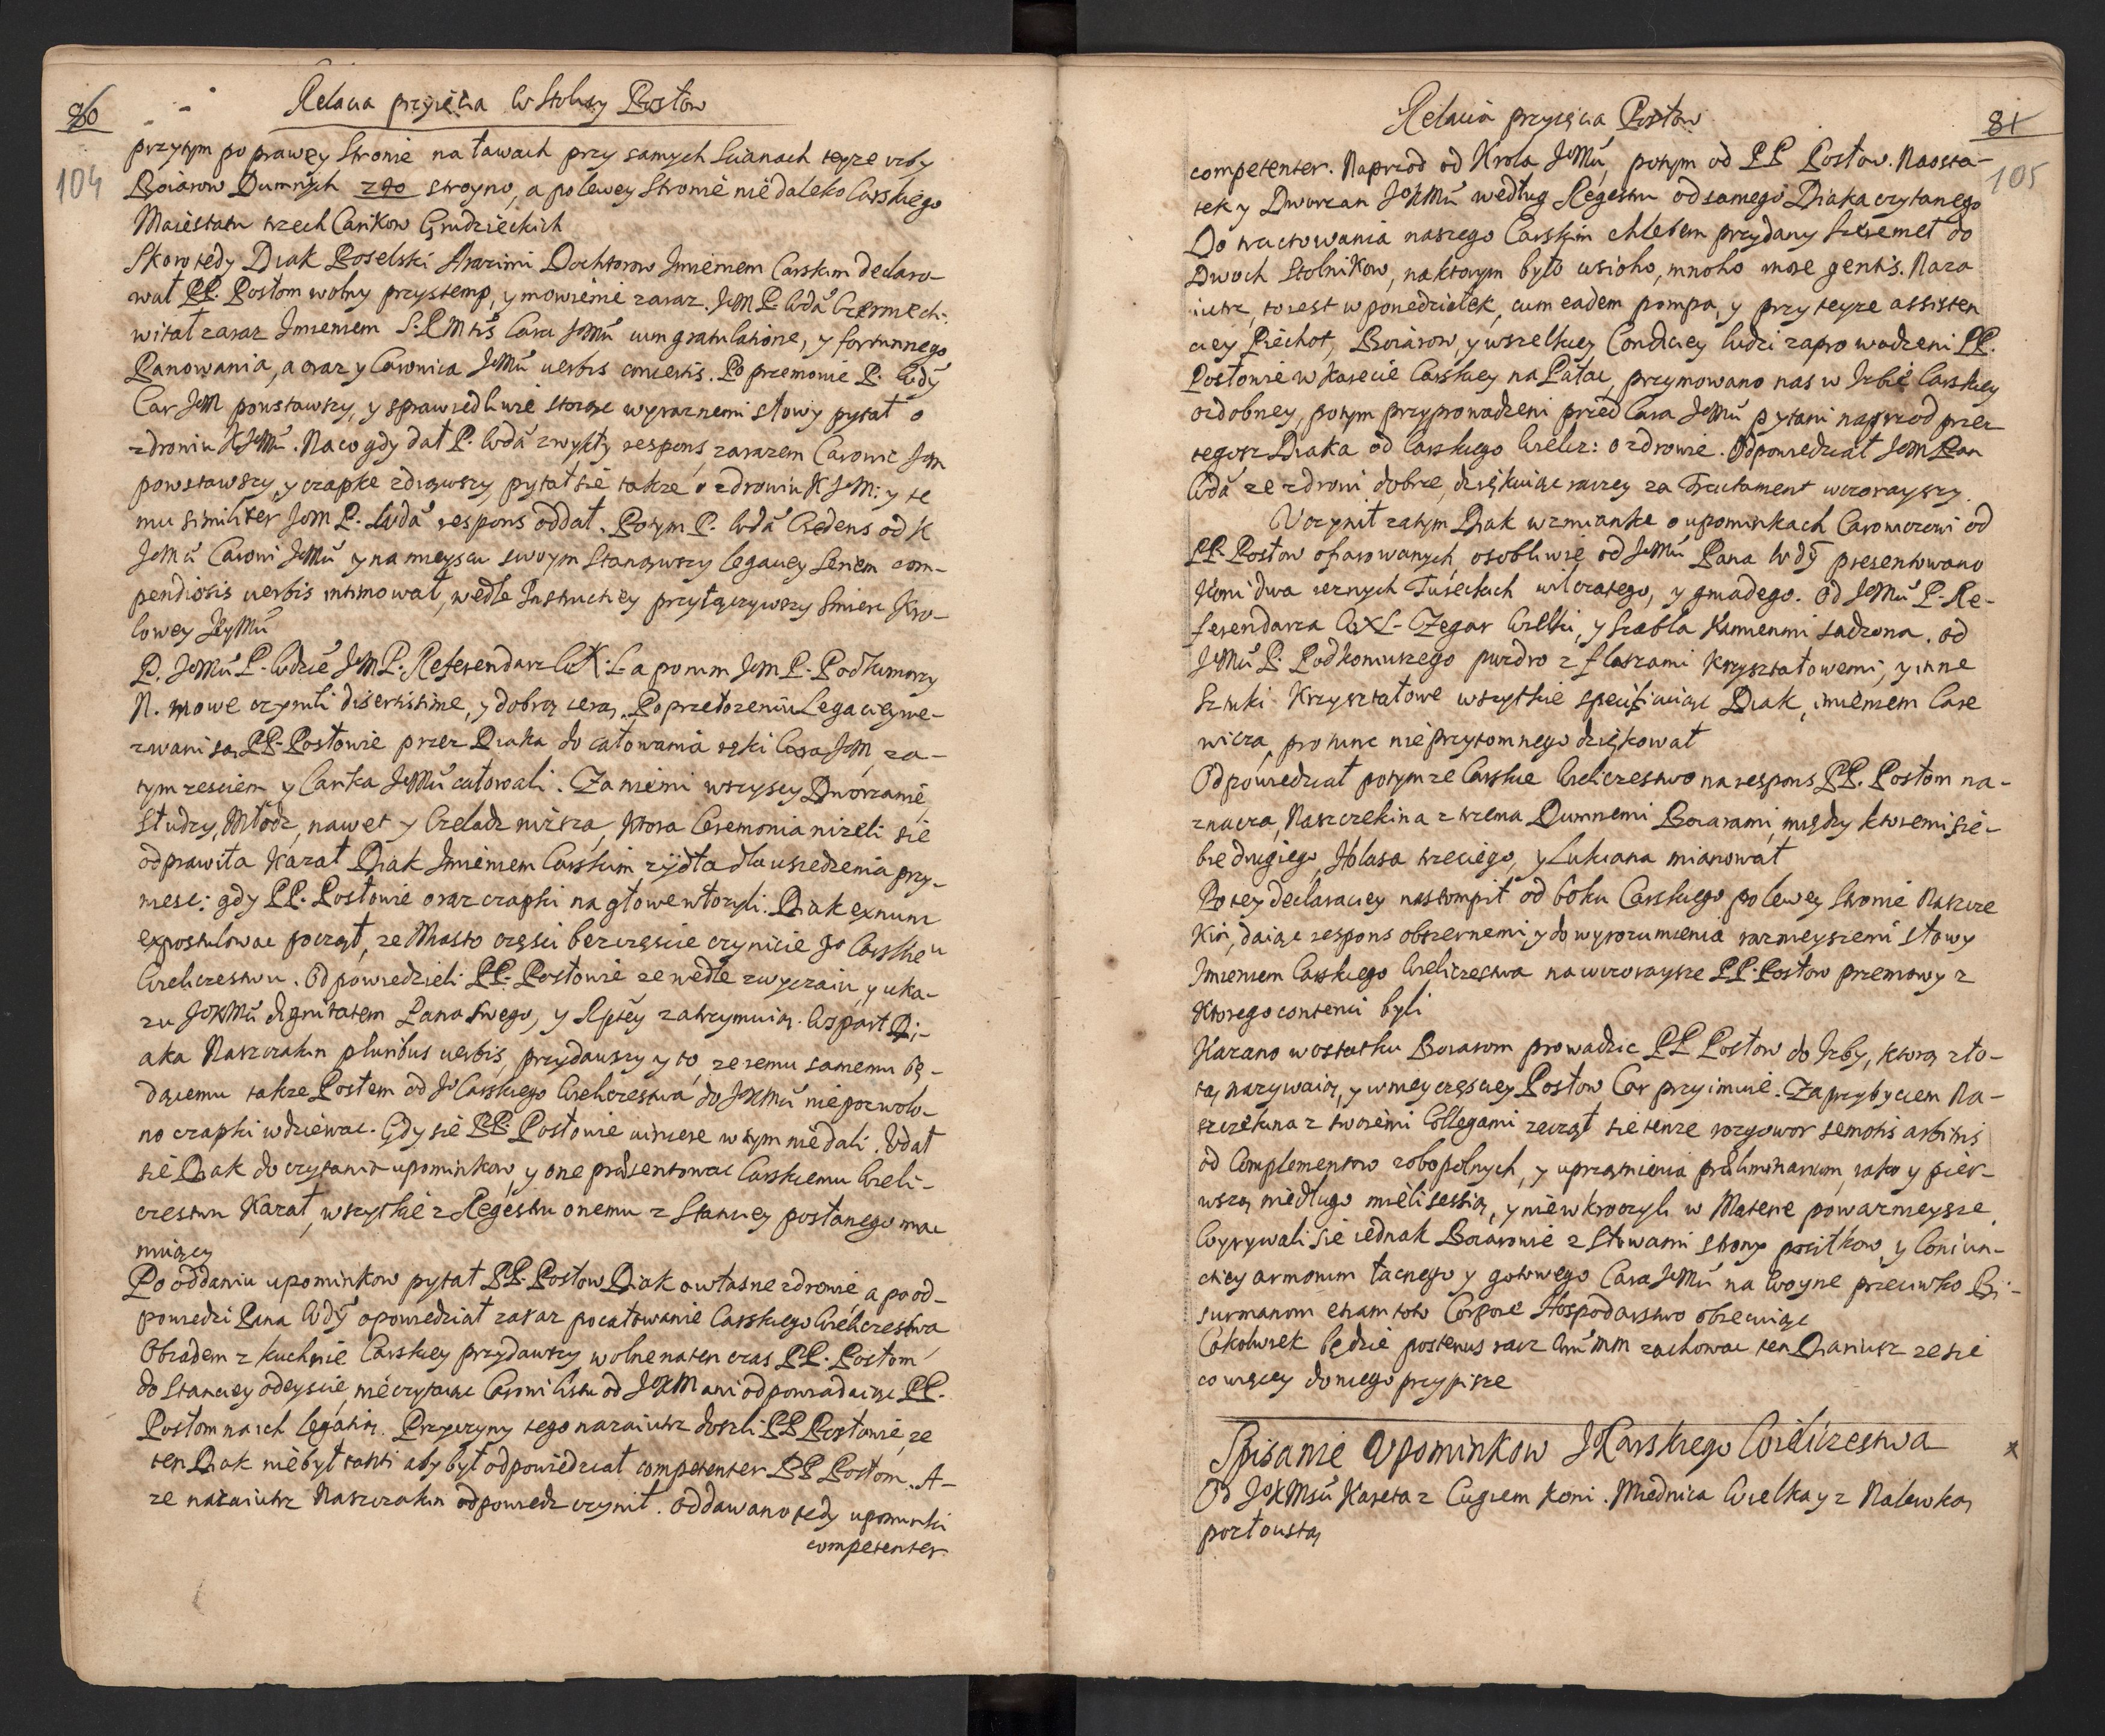 80
104
Relacia przyięcia w Stolicy Posłow
przytym po prawey Stronie na ławach przy samych Scianach teyze izby
Boiarow Dumnych 240 stroyno, a po lewey Stronie niedaleko Carskiego
Maiestatu trzech Carikow Grudzieckich
Skoro tedy Diak Poselski Imieniem Carskim declaro-
wał PP. Posłom wolny przystemp, y mowienie zaraz. JeM P. Wda Czerniech:
witał zaraz Imieniem Cara JeMu cum gratulatione, y fortunnego
Panowania, a oraz y Carowica JeMu uerbis concertis. Po przemowie P. Wdy
Car JeM powstawszy, y sprawiedliwie stoiąc wyraznemi słowy pytał o
zdrowiu KJeMu. Naco gdy dał P. Wda zwykły respons, zarazem Carowic JeM
powstawszy, y czapke zdiąwszy pytał sie takze o zdrowiu K JeM: y te
mu similiter JeM P. Wda respons oddał. Potym P. Wda Credens od K
JeMu Carowi JeMu y na mieyscu swoym Stanąwszy legacyey Seriem com-
pendiosis uerbis intimował, wedle Instructiey przyłączywszy Smierc Kro-
lowey JeyMu
P. JeMu P. Wdzie JeM P. Referendarz WXL a potym JeM P. Podkumorzy
N. mowe czynili disertissime, y dobrą cerą. Po przełozeniu Legaciey we-
zwani są PP. Posłowie przez Diaka do całowania ręki Cara JeM, za-
tym zesciem y Carika JeMu całowali. Za niemi wszyscy Dworzanie,
Słudzy, Młodz, nawet y Czeladz nizsza, ktora Ceremonia nizeli sie
odprawiła Kazał Diak Imieniem Carskim zydła dla usiedzenia przy-
niesc: gdy PP. Posłowie oraz czapki na głowe włozyli. Diak ex nunc
expostulowac począł, ze Miasto części bezczęscie czynicie Jo Carskieu
Wieliczestwu. Odpowiedzieli PP. Posłowie ze wedle zwyczaiu, y uka-
zu JoKMu dignitatem Pana Swego, y Rptey zatrzymuią. Wsparł Di-
aka Naszczakin pluribus uerbis, przydawszy y to, ze iemu samemu bę-
dącemu takze Posłem od Jo Carskiego Wieliczestwa do JoKMu nie pozwolo-
no czapki wdziewac. Gdy sie PP. Posłowie uincere w tym nie dali. Udał
sie Diak do czytania upominkow, y one praesentowac Carskiemu Wieli-
czestwu Kazał, wszytkie z Regestru onemu z Stanciey posłanego mia
nuiący
Po oddaniu upominkow pytał PP. Posłow Diak o własne zdrowie, a po od-
powiedzi Pana Wdy opowiedział zaraz pocałowanie Carskiego Wieliczestwa,
Obiadem z kuchnie Carskiey przydawszy wolne naten czas PP. Posłom
do Stanciey odeyscie, nie czytaiąc Carowi listu od JoKM ani odpowiadaiąc PP.
Posłom na ich legatią. Przyczyny tego nazaiutrz doszli PP Posłowie, ze
ten Diak nie był takti aby był odpowiedział competenter PP Posłom. A-
ze nazaiutrz Naszczakin odpowiedz czynił. oddawano tedy upominki
competenter.
Relacia przyięcia Posłow
81
105
competenter. Naprzod od Krola JeMu, potym od PP Posłow. Naosta-
tek y Dworzan JoKMu według Regestru od samego Diaka czytanego
Do tractowania naszego Carskim chlebem przydany Szeremet do
Dwoch Stolnikow, na ktorym było wsioho, mnoho more gentis. Naza
iutrz, to iest w poniedziałek, cum eadem pompa, y przy teyze assisten
ciey Piechot, Boiarow, y wszelkiey Condiciey ludzi zaprowadzeni PP.
Posłowie w karecie Carskiey na Pałac, przymowano nas w Izbie Carskiey
ozdobney, potym przyprowadzeni przed Cara JeMu pytani naprzod przez
tegosz Diaka od Carskiego Wielicz: o zdrowie. Odpowiedział JeM Pan
Wda ze zdrowi dobrze, dziękuiąc raczey za Tractament wczorayszy.
Uczynił zatym Diak wzmianke o upominkach Carowicowi od
PP. Posłow ofiarowanych, osobliwie od JeMu Pana Wdy presentowano
Koni dwa cernych Tureckich wilczatego, y gniadego. Od JeMu P. Re-
ferendarza WXL Zegar Wielki, y Szabla Kamienmi sadzona. od
JeMu P. Podkoniuszego puzdro z flaszami Krzyształowemi, y inne
Sztuki Krzyształowe wszytkie specifikuiąc Diak, imieniem Care
wicza, pro tunc nieprzytomnego dziękował
Odpowiedział potym ze Carskie Wieliczestwo na respons PP. Posłom na-
znacza, Naszczekina z trzema Dumnemi Boiarami, między ktoremi sie-
bie drugiego, Hlasa trzeciego, y Lukiana mianował
Po tey declaraciey nastompił od boku Carskiego po lewey Stronie Naszcze
kin, daiąc respons obszernemi y do wyrozumienia razneyszemi słowy
Imieniem Carskiego Wieliczestwa na wczorayszie PP. Posłow przemowy z
Ktorego contenci byli
Kazano w ostatku Boiarom prowadzic PP Posłow do Izby, ktorą zło-
tą nazywaią, y w niey częsciey Posłow Car przyimuie. Za przybyciem Na-
szczekina z swoiemi Collegami zeczął sie tenze rozgowor semotis arbitris
od Complementow zobopolnych, y uprzątnienia praeliminarium, iako y pier-
wszą niedługo mieli sessią, y nie wkroczyli w Materie powazneysze.
Wyrywali sie iednak Boiarowie z Słowami strony posiłkow, y Coniun-
ctiey armorum łacnego y gotowego Cara JeMu na Woyne przeciwko Bi-
surmanom etiam toto Corpore Hospodarstwo obiecuiąc
Cokolwiek będzie posterius racz Wm MM zachowac ten Diariusz ze sie
co więcey do niego przypisze
Spisanie Upominkow JoCarskiego Wieliczestwa
Od JoKMsci Kareta z Cugiem koni. Miednica Wielka y z Nalewką
pozłocistą